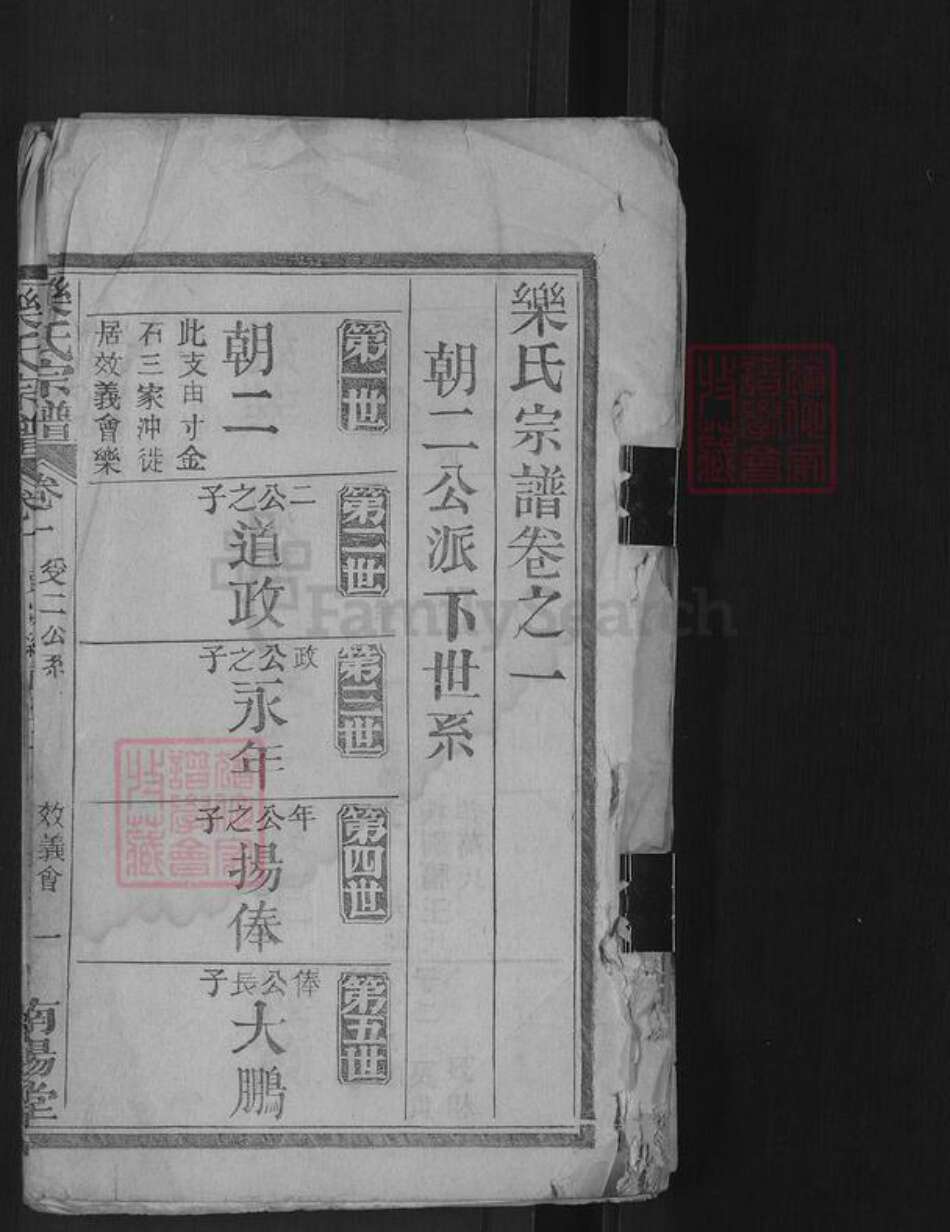 樂氏宗譜卷之一
朝二公派下世系
第一世
朝二
此支由寸金
石三家冲徙
居效義會樂
第二世
二公之子
道政
第三世
政公之子
永年
第四世
年公之子
揚俸
第五世
俸公長子
大鵬
樂氏宗譜
卷一
受二公系
效義會
一
南陽堂
FamilySearch
譜學會
藏
譜學會
藏